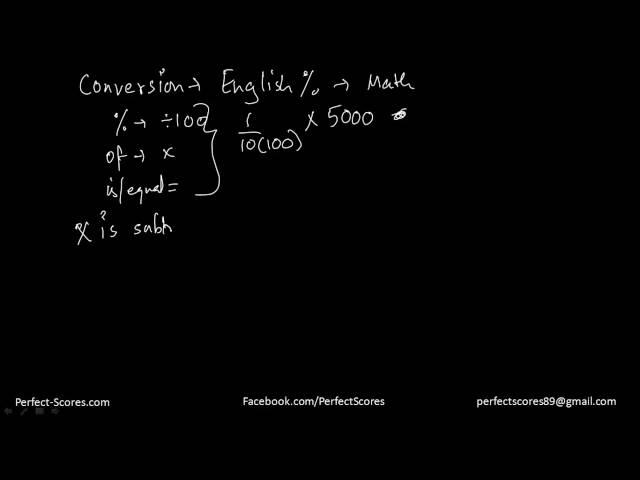 Conversion → English % → Math
% → ÷100
of → x
is/equal =
1
10(100) × 5000
X is subtr
Perfect-Scores.com
Facebook.com/PerfectScores
perfectscores89@gmail.com